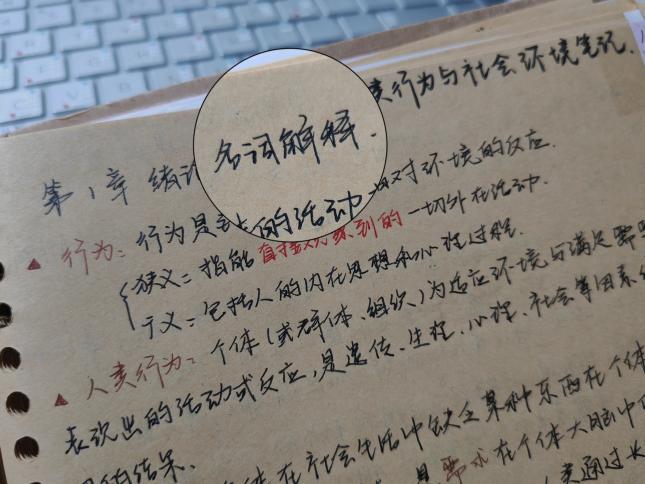 类行为与社会环境笔记.
名词解释.
第1章 绪论
▲ 行为: 行为是 的活动 对环境的反应.
狭义: 指能直接观察到的一切外在活动.
广义: 包括人的内在思想和心理过程.
▲ 人类行为: 个体(或群体、组织、)为适应环境与满足需要
表现出的活动或反应,是遗传、生理、心理、社会等因素
的结果.
在社会生活中缺乏某种东西在个体
需求在个体大脑中
类通过长